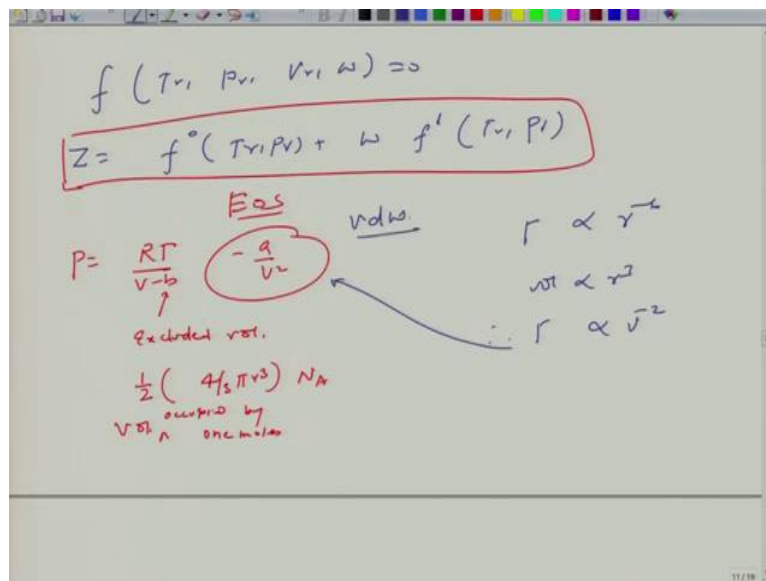 f (Tr, Pr, Vr, ω) = 0
Z = f° (Tr, Pr) + ω f' (Tr, Pr)
EOS
vdw.
P = RT / v-b - a / v²
Excluded vol.
1/2 ( 4/3 π r³ ) NA
vol occupied by
one moles
Γ ∝ r⁻⁶
vol ∝ r³
∴ Γ ∝ v⁻²
11/19